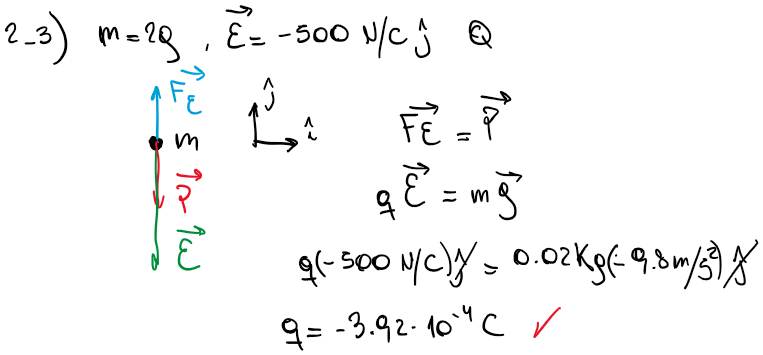 2-3) m=2g, →E = -500 N/C ĵ Q
→F_E
ĵ
m î →F_E = →P
→P
q→E = m→g
→E
q(-500 N/C)ĵ = 0.02Kg(-9.8m/s²)ĵ
q = -3.92·10⁻⁴ C ✓